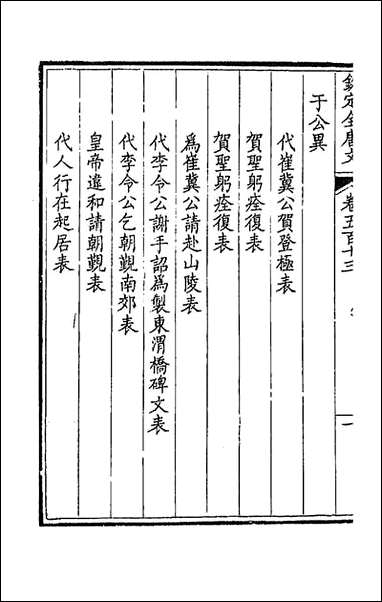 欽定全唐文 卷五百十三 一
于公異
代崔冀公賀登極表
賀聖躬痊復表
賀聖躬痊復表
為崔冀公請赴山陵表
代李令公謝手詔為製東渭橋碑文表
代李令公乞朝覲南郊表
皇帝違和請朝覲表
代人行在起居表